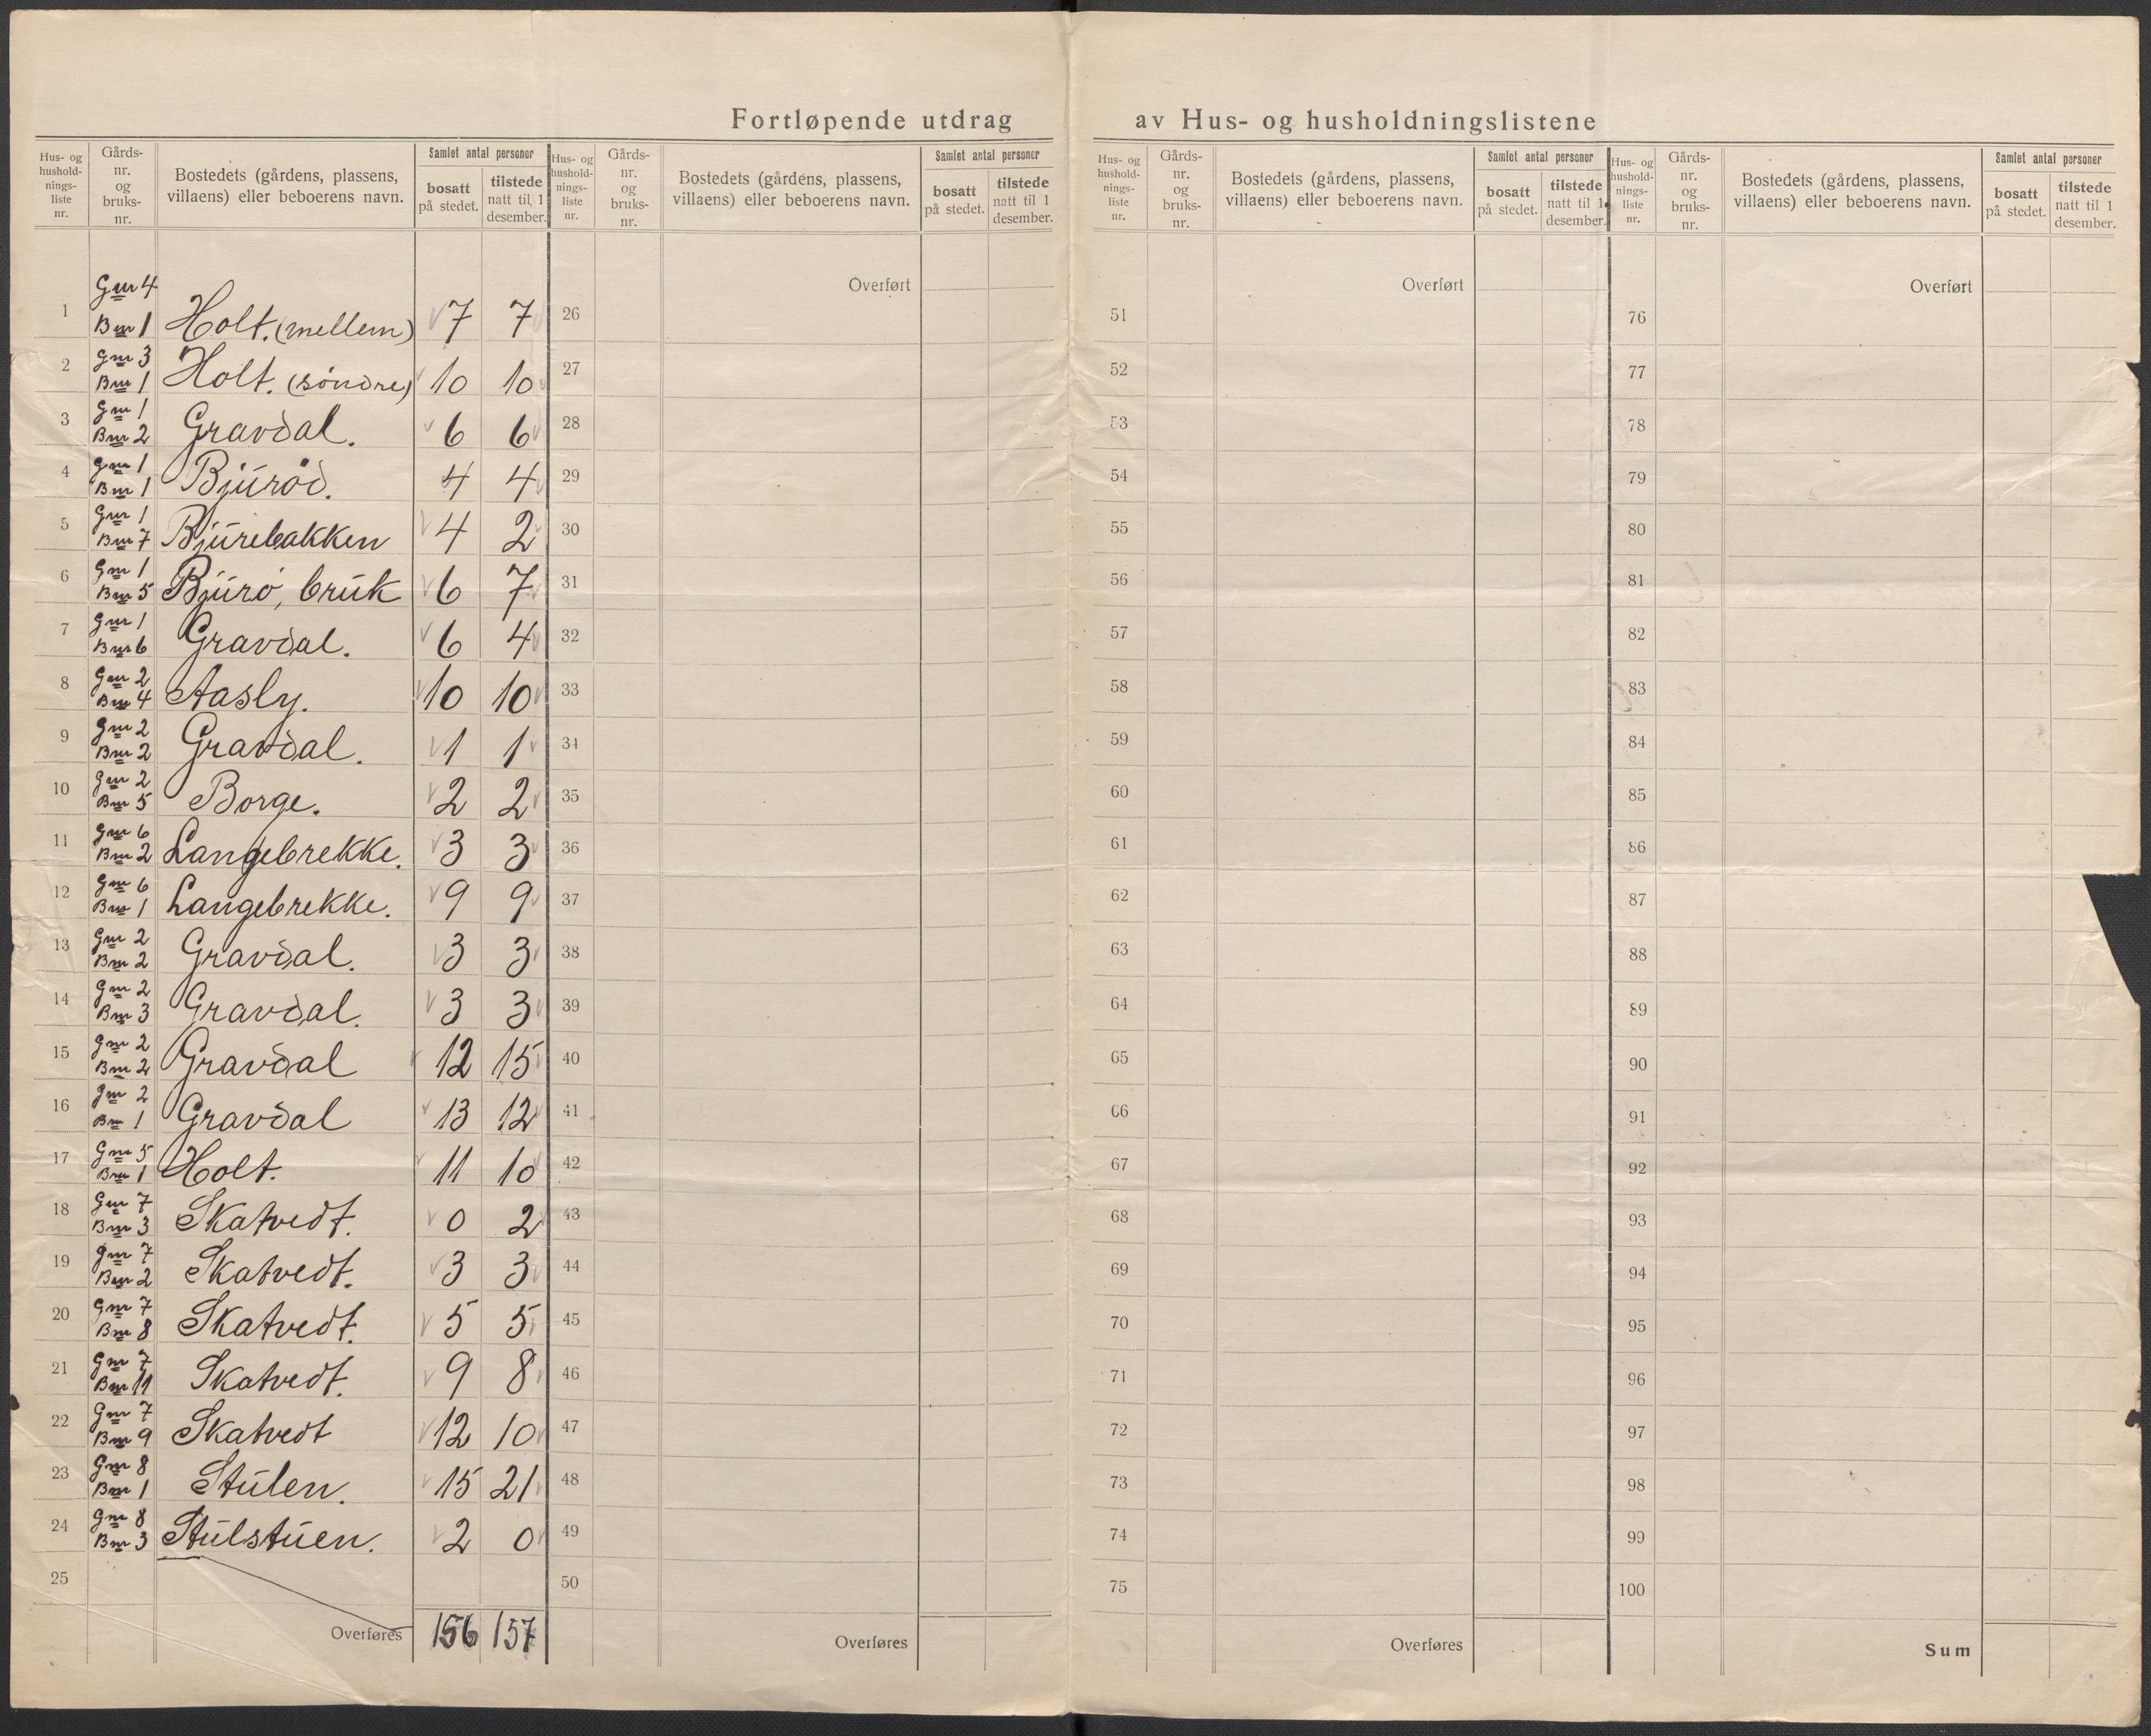 Fortløpende utdrag av Hus- og husholdningslistene
Hus- og hushold-nings-liste nr. Gårds-nr. og bruks-nr. Bostedets (gårdens, plassens, villaens) eller beboerens navn. Samlet antal personer bosatt på stedet. tilstede natt til 1 desember.
Hus- og hushold-nings-liste nr. Gårds-nr. og bruks-nr. Bostedets (gårdens, plassens, villaens) eller beboerens navn. Samlet antal personer bosatt på stedet. tilstede natt til 1 desember.
Hus- og hushold-nings-liste nr. Gårds-nr. og bruks-nr. Bostedets (gårdens, plassens, villaens) eller beboerens navn. Samlet antal personer bosatt på stedet. tilstede natt til 1 desember.
Hus- og hushold-nings-liste nr. Gårds-nr. og bruks-nr. Bostedets (gårdens, plassens, villaens) eller beboerens navn. Samlet antal personer bosatt på stedet. tilstede natt til 1 desember.
1 Gnr 4 Bnr 1 Holt. (mellem) 7 7
2 Gnr 3 Bnr 1 Holt. (söndre) 10 10
3 Gnr 1 Bnr 2 Gravdal. 6 6
4 Gnr 1 Bnr 1 Bjuröd. 4 4
5 Gnr 1 Bnr 7 Bjurebakken 4 2
6 Gnr 1 Bnr 5 Bjurö, bruk 6 7
7 Gnr 1 Bnr 6 Gravdal. 6 4
8 Gnr 2 Bnr 4 Aasly. 10 10
9 Gnr 2 Bnr 2 Gravdal. 1 1
10 Gnr 2 Bnr 5 Borge. 2 2
11 Gnr 6 Bnr 2 Langebrekke. 3 3
12 Gnr 6 Bnr 1 Langebrekke. 9 9
13 Gnr 2 Bnr 2 Gravdal. 3 3
14 Gnr 2 Bnr 3 Gravdal. 3 3
15 Gnr 2 Bnr 2 Gravdal 12 15
16 Gnr 2 Bnr 1 Gravdal 13 12
17 Gnr 5 Bnr 1 Holt. 11 10
18 Gnr 7 Bnr 3 Skatvedt. 0 2
19 Gnr 7 Bnr 2 Skatvedt. 3 3
20 Gnr 7 Bnr 8 Skatvedt. 5 5
21 Gnr 7 Bnr 11 Skatvedt. 9 8
22 Gnr 7 Bnr 9 Skatvedt 12 10
23 Gnr 8 Bnr 1 Stulen. 15 21
24 Gnr 8 Bnr 3 Stulstuen. 2 0
25
Overføres 156 157
Overført
26
27
28
29
30
31
32
33
34
35
36
37
38
39
40
41
42
43
44
45
46
47
48
49
50
Overføres
Overført
51
52
53
54
55
56
57
58
59
60
61
62
63
64
65
66
67
68
69
70
71
72
73
74
75
Overføres
Overført
76
77
78
79
80
81
82
83
84
85
86
87
88
89
90
91
92
93
94
95
96
97
98
99
100
Sum